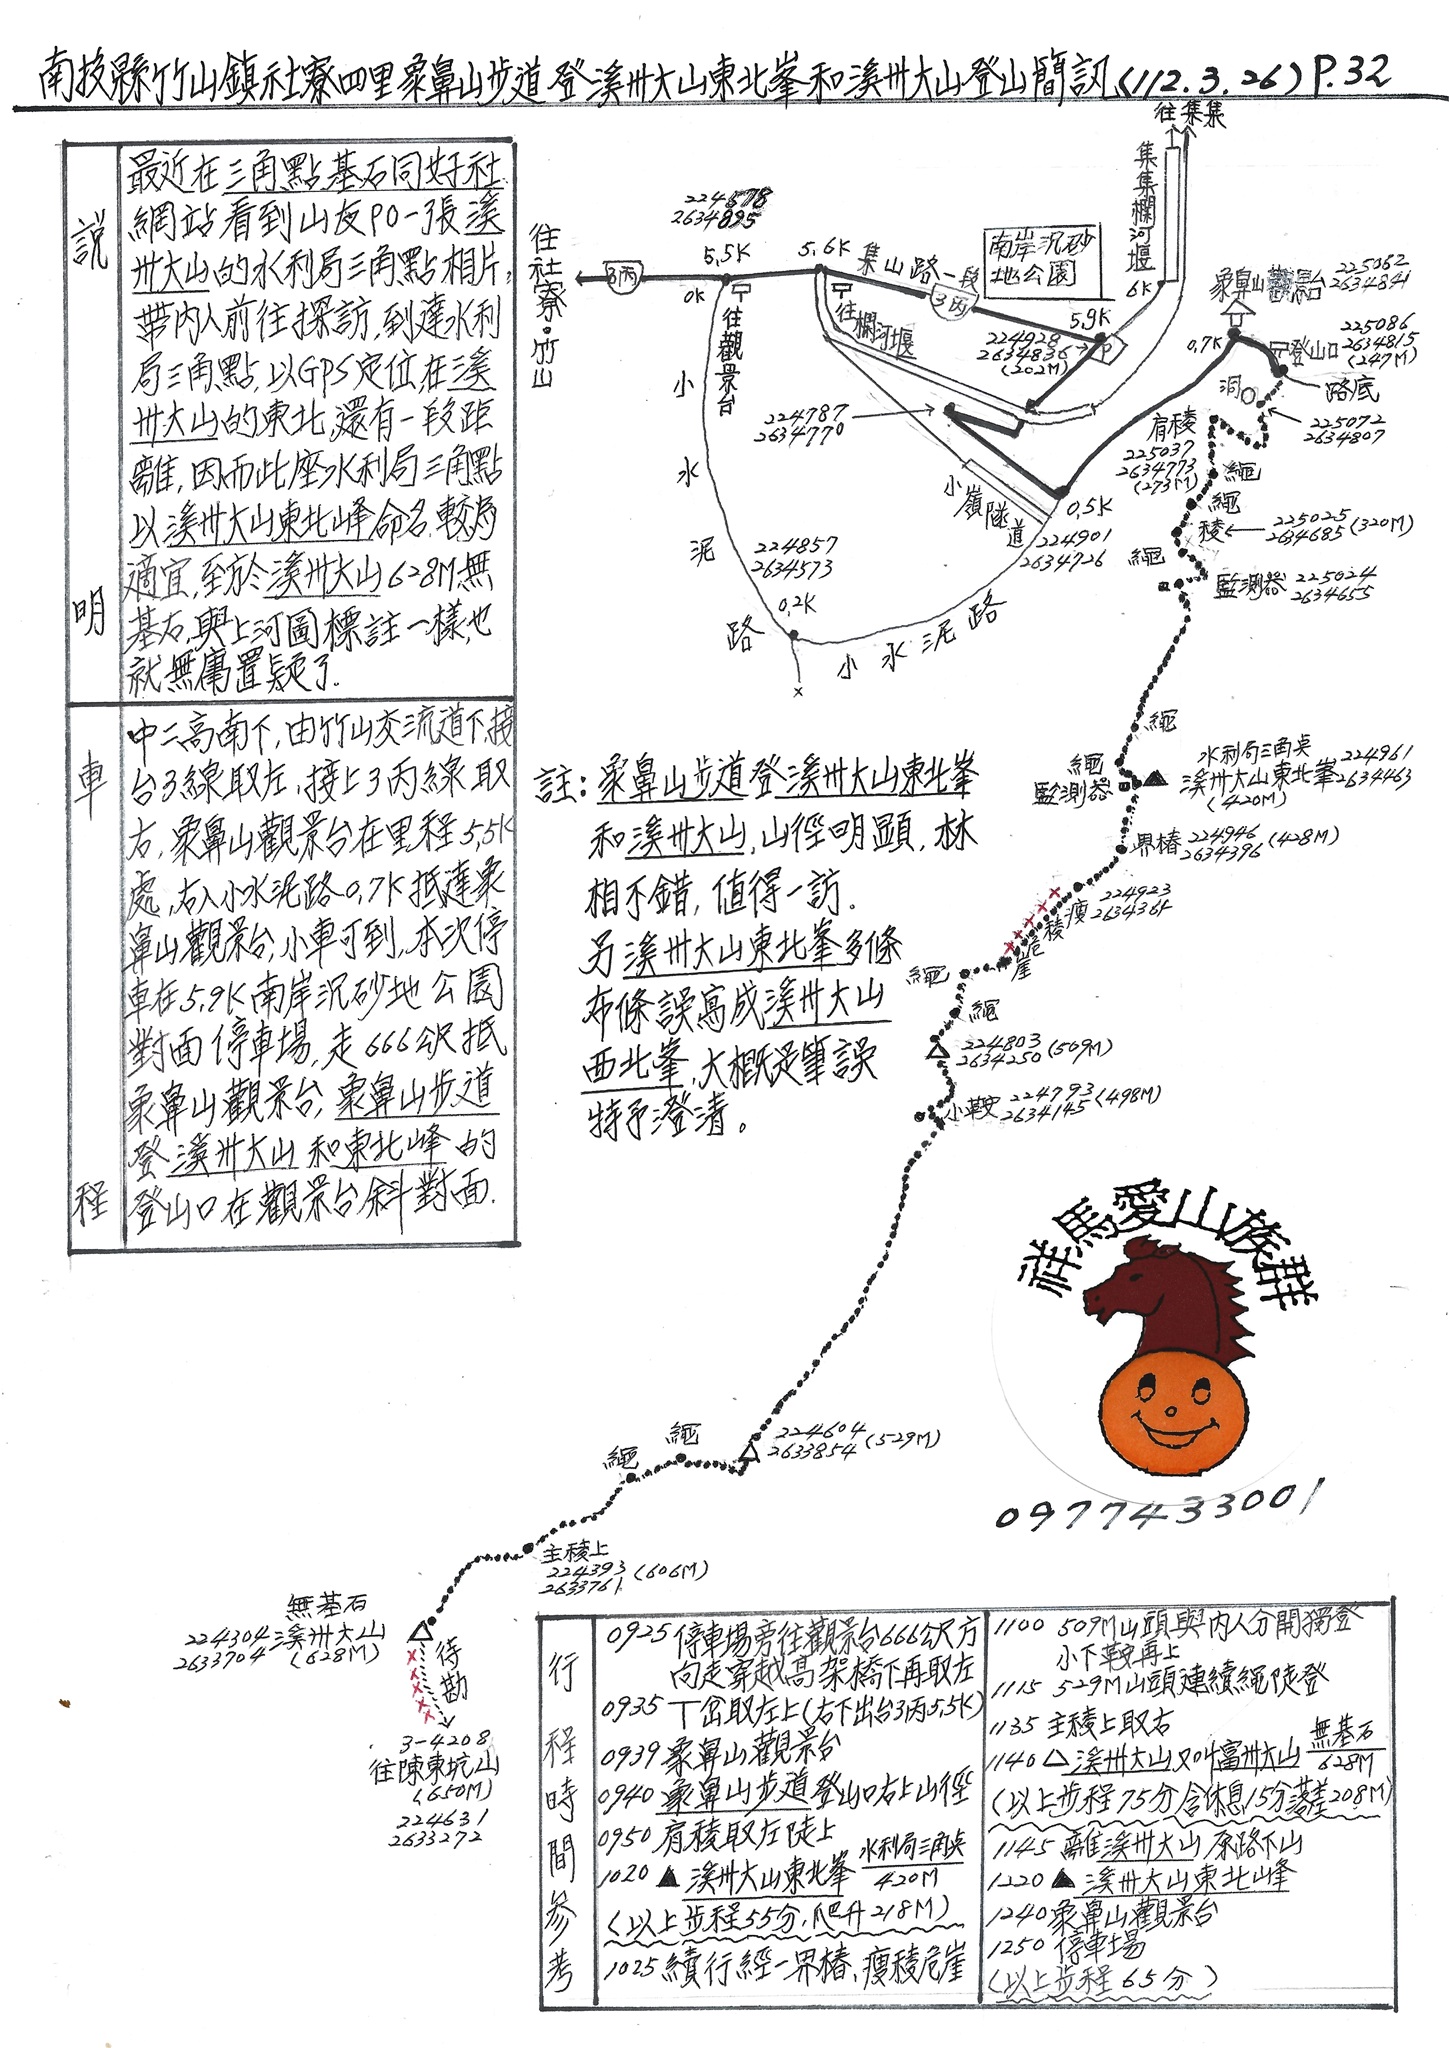 南投縣竹山鎮社寮四里象鼻山步道登溪州大山東北峯和溪州大山登山簡訊(112.3.26) P.32
說明
最近在三角點基石同好社
網站看到山友PO一張溪
州大山的水利局三角點相片,
帶內人前往探訪,到達水利
局三角點,以GPS定位,在溪
州大山的東北,還有一段距
離,因而此座水利局三角點
以溪州大山東北峰命名較為
適宜,至於溪州大山628M無
基石,與上河圖標註一樣,也
就無庸置疑了.
車程
中二高南下,由竹山交流道下,接
台3線取左,接上3丙線取
右,象鼻山觀景台在里程5,5K
處,右入小水泥路0,7K抵達象
鼻山觀景台,小車可到,本次停
車在5,9K南岸沉砂地公園
對面停車場,走666公尺抵
象鼻山觀景台,象鼻山步道
登溪州大山和東北峰的
登山口在觀景台斜對面.
往社寮·竹山
3丙
224578
2634895
5,5K
0K
往觀景台
5,6K
往欄河堰
集山路一段
3丙
南岸沉砂
地公園
5,9K
P
224928
2634836
(202M)
往集集
集集欄河堰
6K
象鼻山觀景台
225062
2634841
0,7K
登山口
225086
2634815
(247M)
路底
洞
225072
2634807
224787
2634770
小嶺隧道
0,5K
224901
2634726
小水泥路
224857
2634573
0,2K
小水泥路
肩稜
225037
2634773
(273M)
繩
繩
稜
225025
2634685(320M)
繩
監測器
225024
2634655
繩
繩
監測器
水利局三角点
溪州大山東北峯
(420M)
224961
2634463
界樁
224946
2634396(428M)
224923
2634361
瘦稜危崖
繩
繩
224803
2634250(509M)
小鞍
224793
2634145(498M)
註:象鼻山步道登溪州大山東北峯
和溪州大山,山徑明顯,林
相不錯,值得一訪.
另溪州大山東北峯多條
布條誤寫成溪州大山
西北峯,大概是筆誤
特予澄清。
祥馬愛山族群
0977433001
224604
2633854(529M)
繩
繩
主稜上
224393
2633761(606M)
無基石
溪州大山
(628M)
224304
2633704
待勘
3-4208
往陳東坑山
(650M)
224631
2633272
行程時間參考
0925停車場旁往觀景台666公尺方
向走穿越高架橋下再取左
0935丁岔取左上(右下出台3丙5,5K)
0939象鼻山觀景台
0940象鼻山步道登山口右上山徑
0950肩稜取左陡上
1020▲溪州大山東北峯 水利局三角点
420M
(以上步程55分,爬升218M)
1025續行經一界樁,瘦稜危崖
1100 509M山頭與內人分開獨登
小下鞍再上
1115 529M山頭連續繩陡登
1135主稜上取右
1140△溪州大山又叫富州大山 無基石
628M
(以上步程75分含休息15分落差208M)
1145離溪州大山原路下山
1220▲溪州大山東北峰
1240象鼻山觀景台
1250停車場
(以上步程65分)